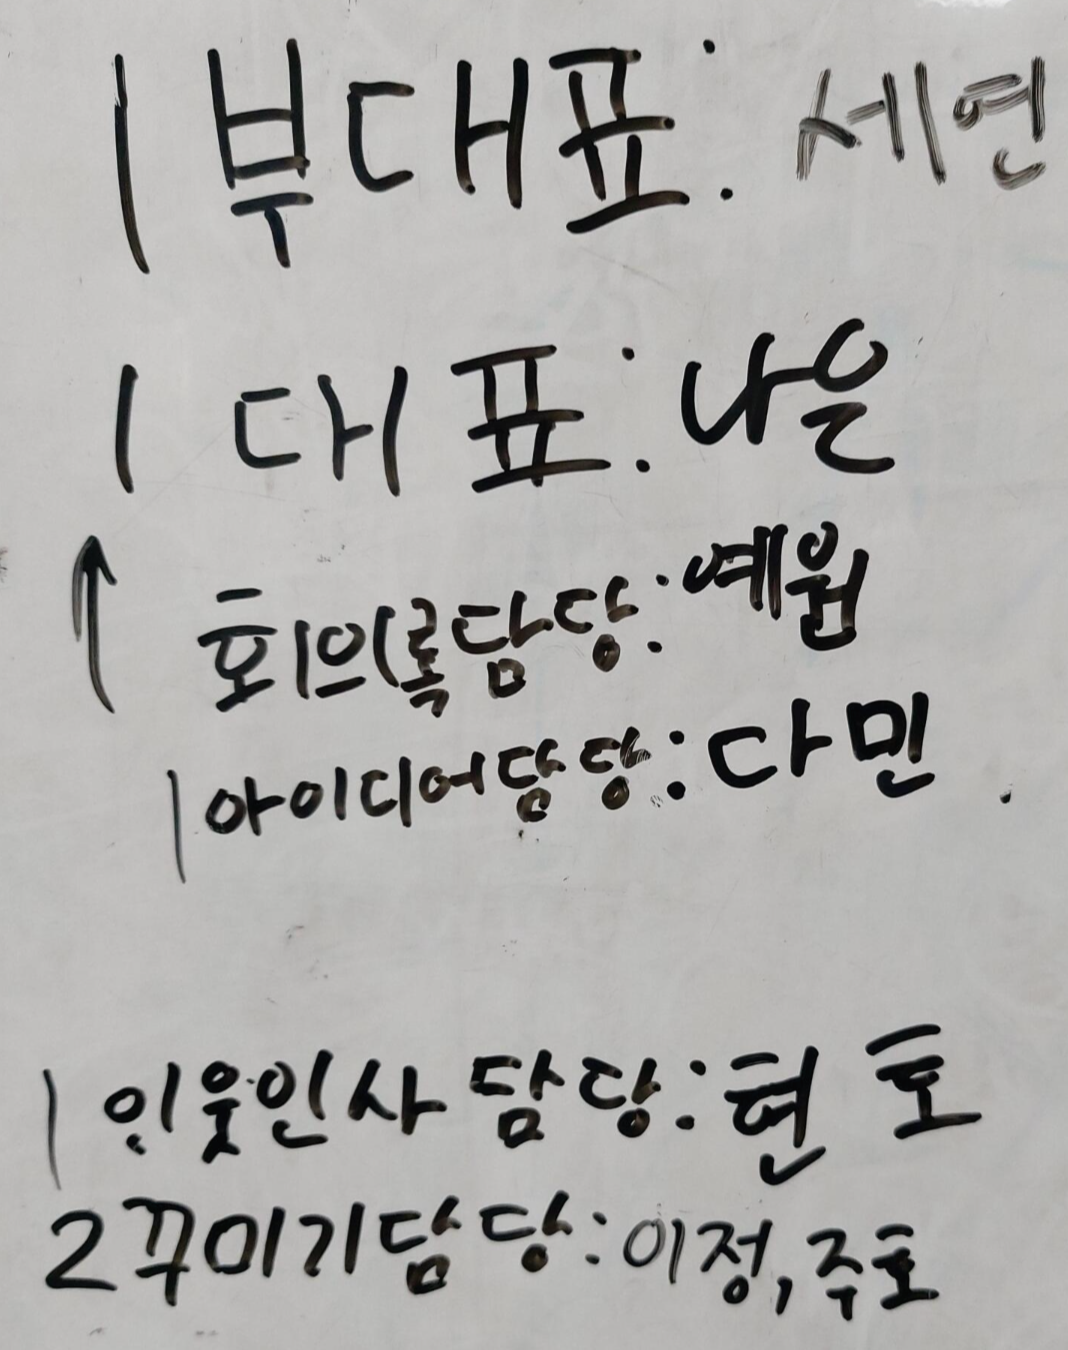 1 부대표: 세연
1 대표: 나은
↑ 회의록담당: 예원
1 아이디어담당: 다민
1 이웃인사 담당: 현호
2 꾸미기담당: 이정, 주호